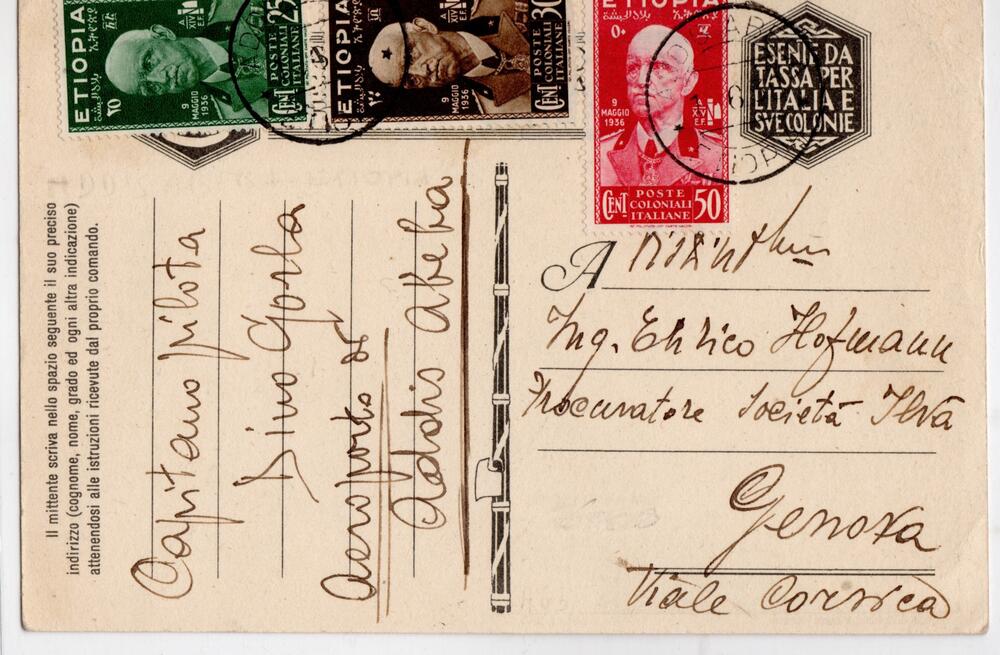 ETIOPIA
9
MAGGIO
1936
A
XIV
E.F.
POSTE
COLONIALI
ITALIANE
CENT 25
ETIOPIA
9
MAGGIO
1936
A
XIV
E.F.
POSTE
COLONIALI
ITALIANE
CENT 30
ETIOPIA
9
MAGGIO
1936
XIV
E.F.
POSTE
COLONIALI
ITALIANE
CENT 50
ESENTE DA
TASSA PER
L'ITALIA E
SVE COLONIE
Il mittente scriva nello spazio seguente il suo preciso
indirizzo (cognome, nome, grado ed ogni altra indicazione)
attenendosi alle istruzioni ricevute dal proprio comando.
Capitano pilota
Dino Gorla
aeroporto di
Addis Abeba
A
Ing. Enrico Hofmann
Procuratore Società Ilva
Genova
Viale Corsica